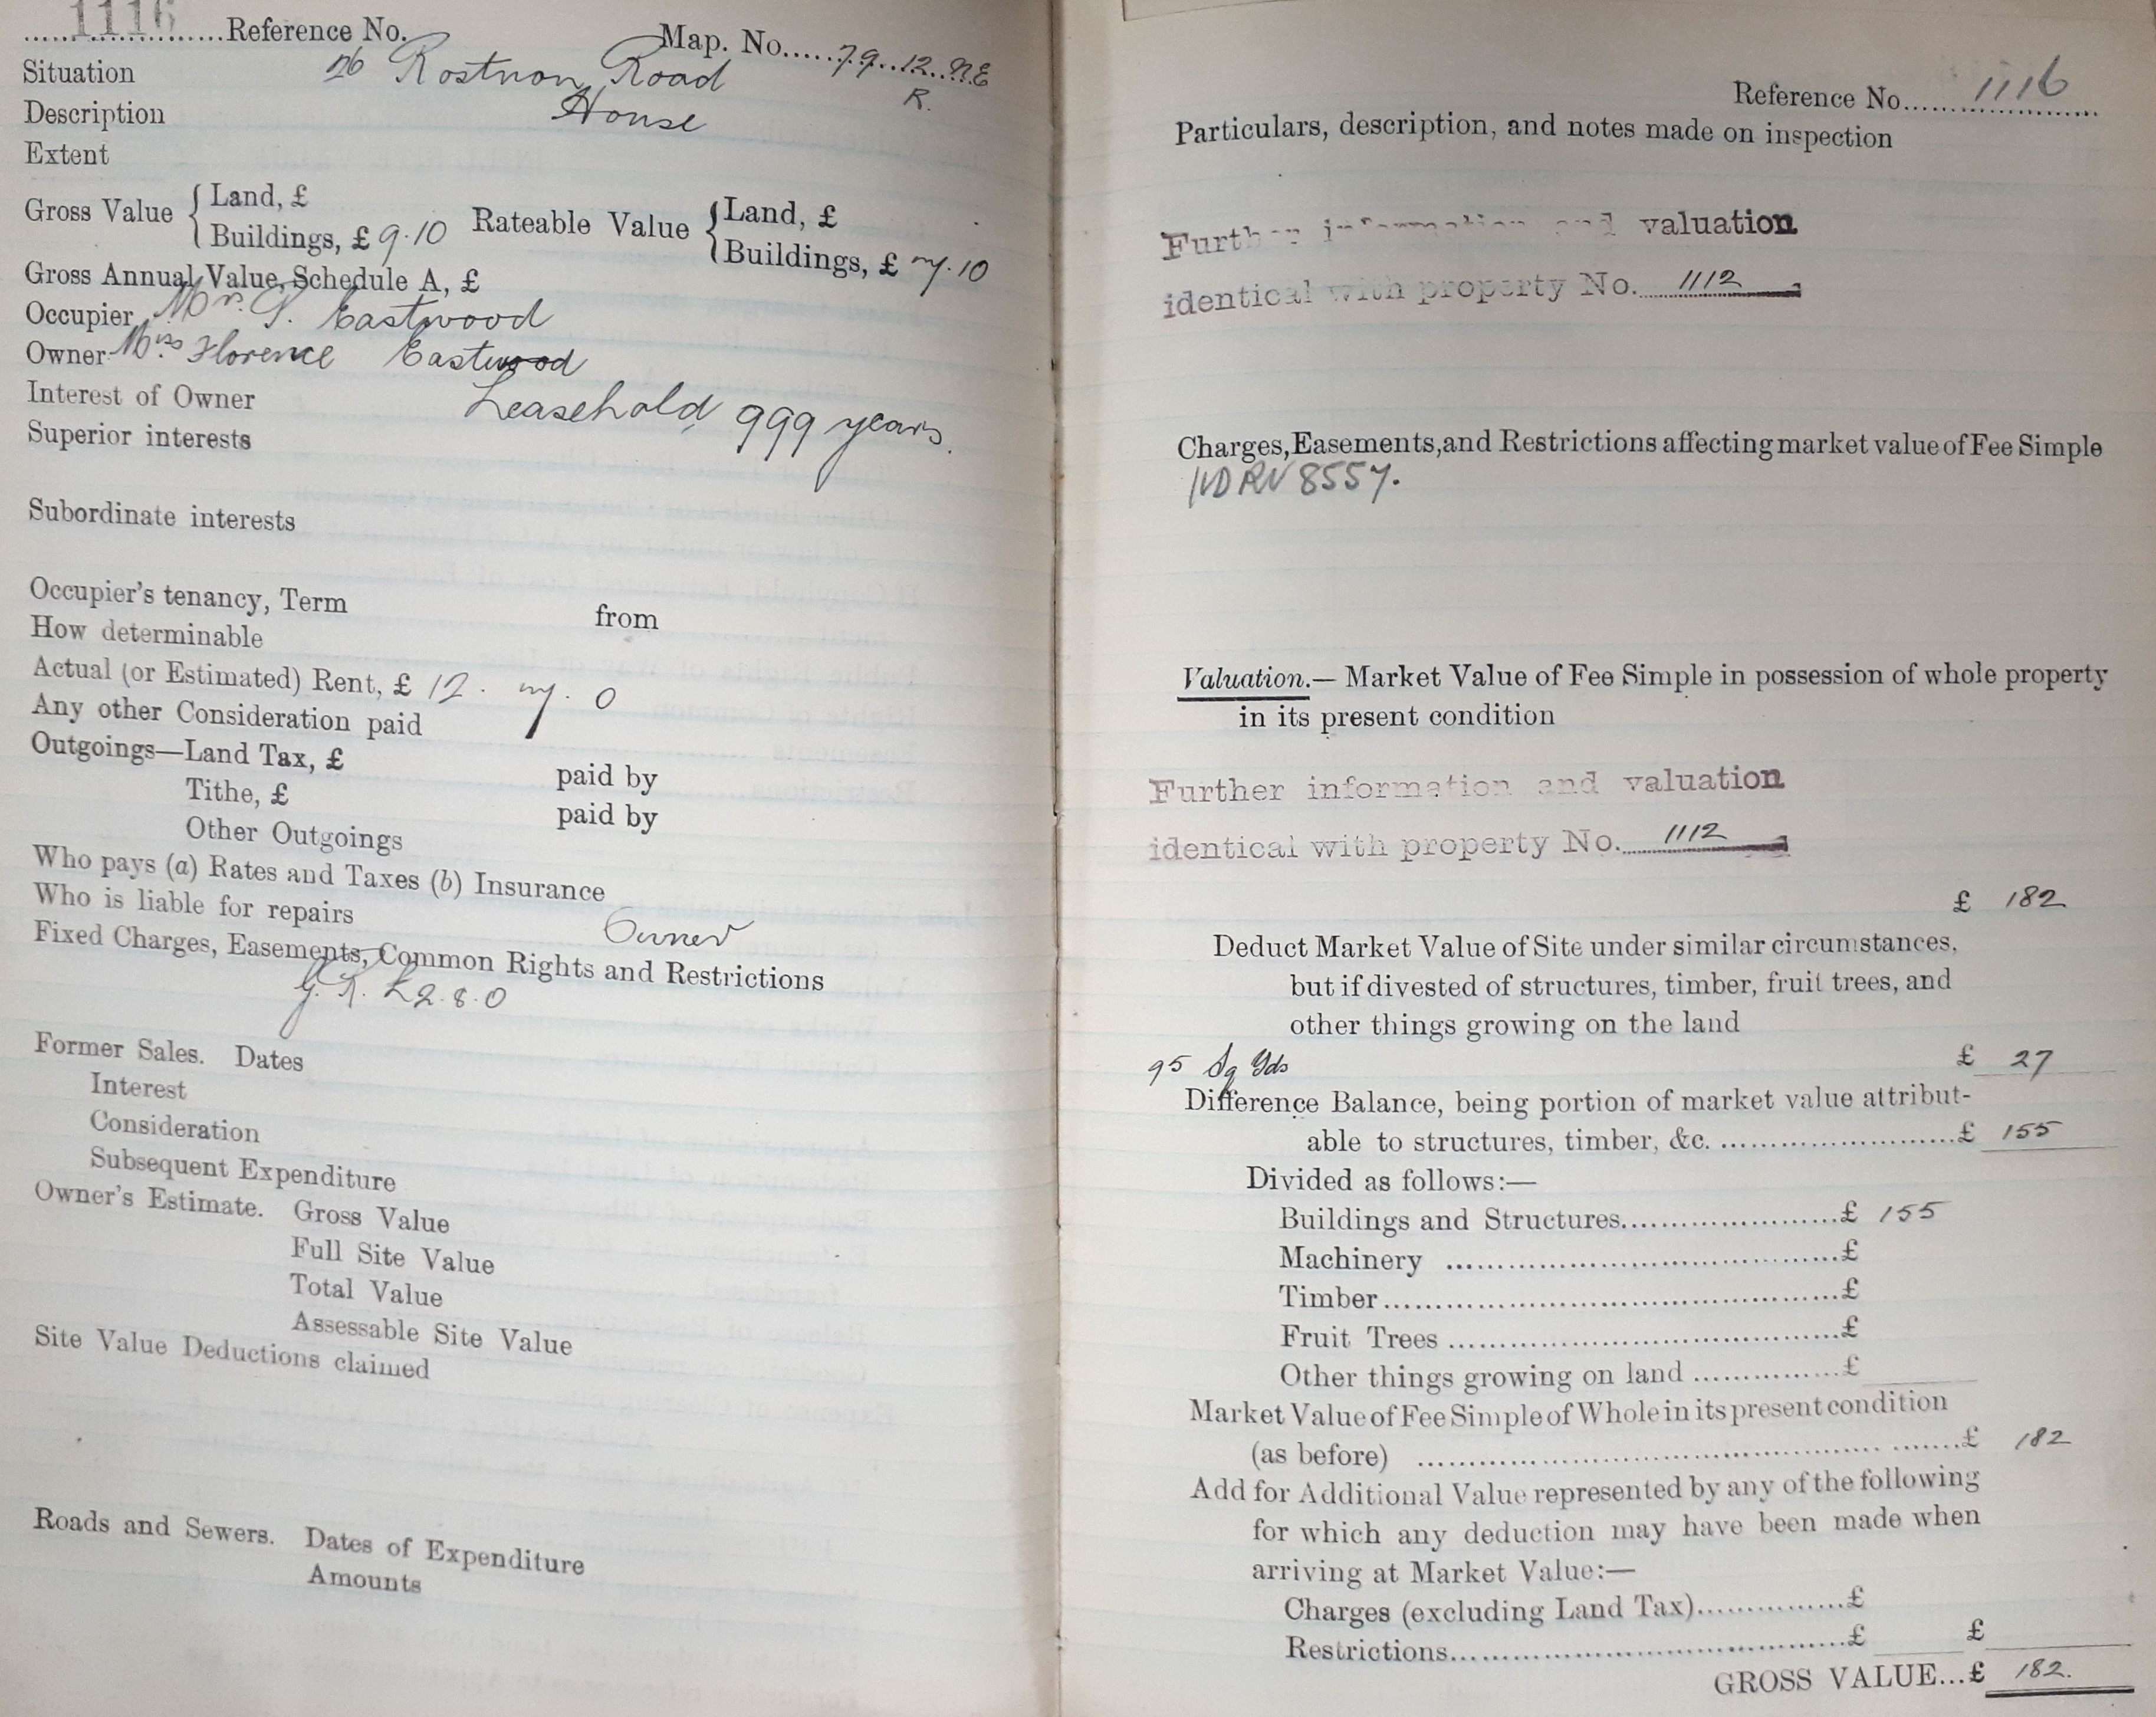 1116 Reference No. Map. No. 79. 12. N.E
R.
Situation 26 Rostron Road
Description House
Extent
Gross Value { Land, £ Rateable Value { Land, £
Buildings, £ 9.10 Buildings, £ 7.10
Gross Annual Value, Schedule A, £
Occupier Mrs. Eastwood
Owner Florence Eastwood
Interest of Owner Leasehold, 999 years.
Superior interests
Subordinate interests
Occupier's tenancy, Term from
How determinable
Actual (or Estimated) Rent, £ 12. 7. 0
Any other Consideration paid
Outgoings—Land Tax, £ paid by
Tithe, £ paid by
Other Outgoings
Who pays (a) Rates and Taxes (b) Insurance
Who is liable for repairs Owner
Fixed Charges, Easements, Common Rights and Restrictions
G. R. £2.8.0
Former Sales. Dates
Interest
Consideration
Subsequent Expenditure
Owner's Estimate. Gross Value
Full Site Value
Total Value
Assessable Site Value
Site Value Deductions claimed
Roads and Sewers. Dates of Expenditure
Amounts
Reference No. 1116
Particulars, description, and notes made on inspection
Further information and valuation
identical with property No. 1112
Charges, Easements, and Restrictions affecting market value of Fee Simple
8557.
Valuation.— Market Value of Fee Simple in possession of whole property
in its present condition
Further information and valuation
identical with property No. 1112
£ 182
Deduct Market Value of Site under similar circumstances,
but if divested of structures, timber, fruit trees, and
other things growing on the land
95 Sq Yds £ 27
Difference Balance, being portion of market value attribut-
able to structures, timber, &c. £ 155
Divided as follows:—
Buildings and Structures £ 155
Machinery £
Timber £
Fruit Trees £
Other things growing on land £
Market Value of Fee Simple of Whole in its present condition
(as before) £ 182
Add for Additional Value represented by any of the following
for which any deduction may have been made when
arriving at Market Value:—
Charges (excluding Land Tax) £
Restrictions £ £
GROSS VALUE...£ 182.